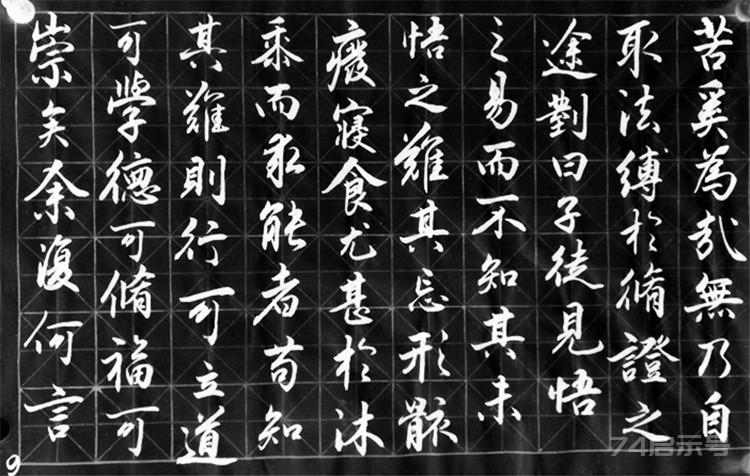 苦奚為哉無乃自
取法縛於脩證之
途對曰子徒見悟
之易而不知其未
悟之難其忘形骸
癈寢食尤甚於沐
黍而求能者茍知
其難則行可立道
可學德可脩福可
崇矣余復何言
9
74启示号